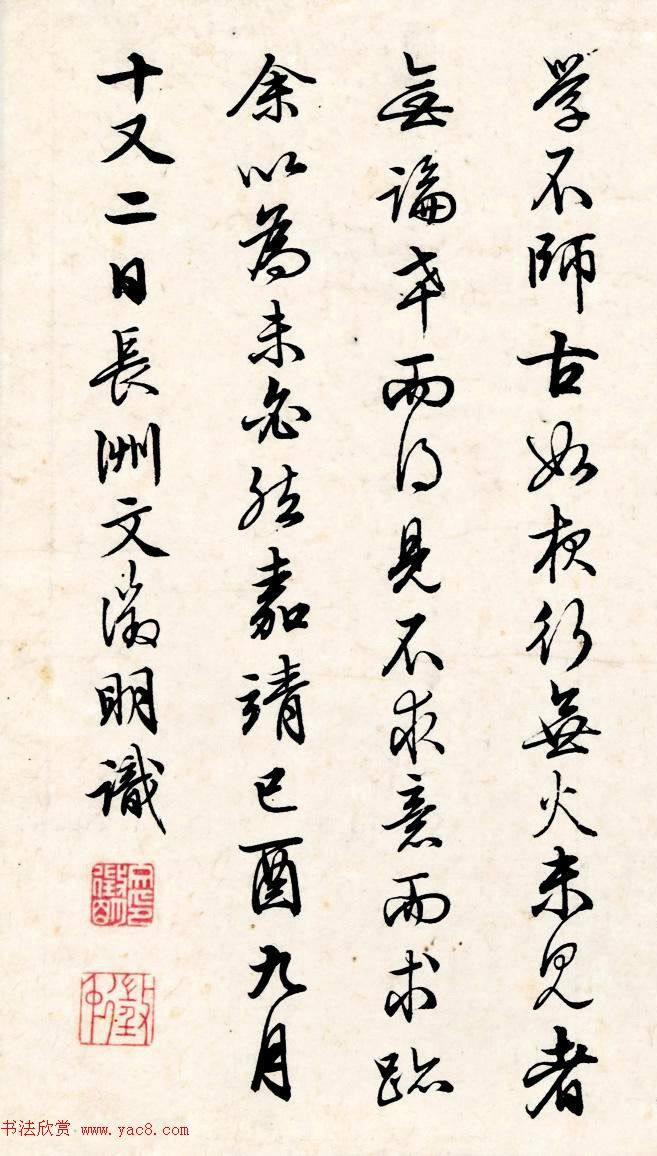 学不師古如夜行無火未見者
無論幸而得見不求意而求跡
余以為未必然嘉靖己酉九月
十又二日長洲文徵明識
书法欣赏 www.yac8.com